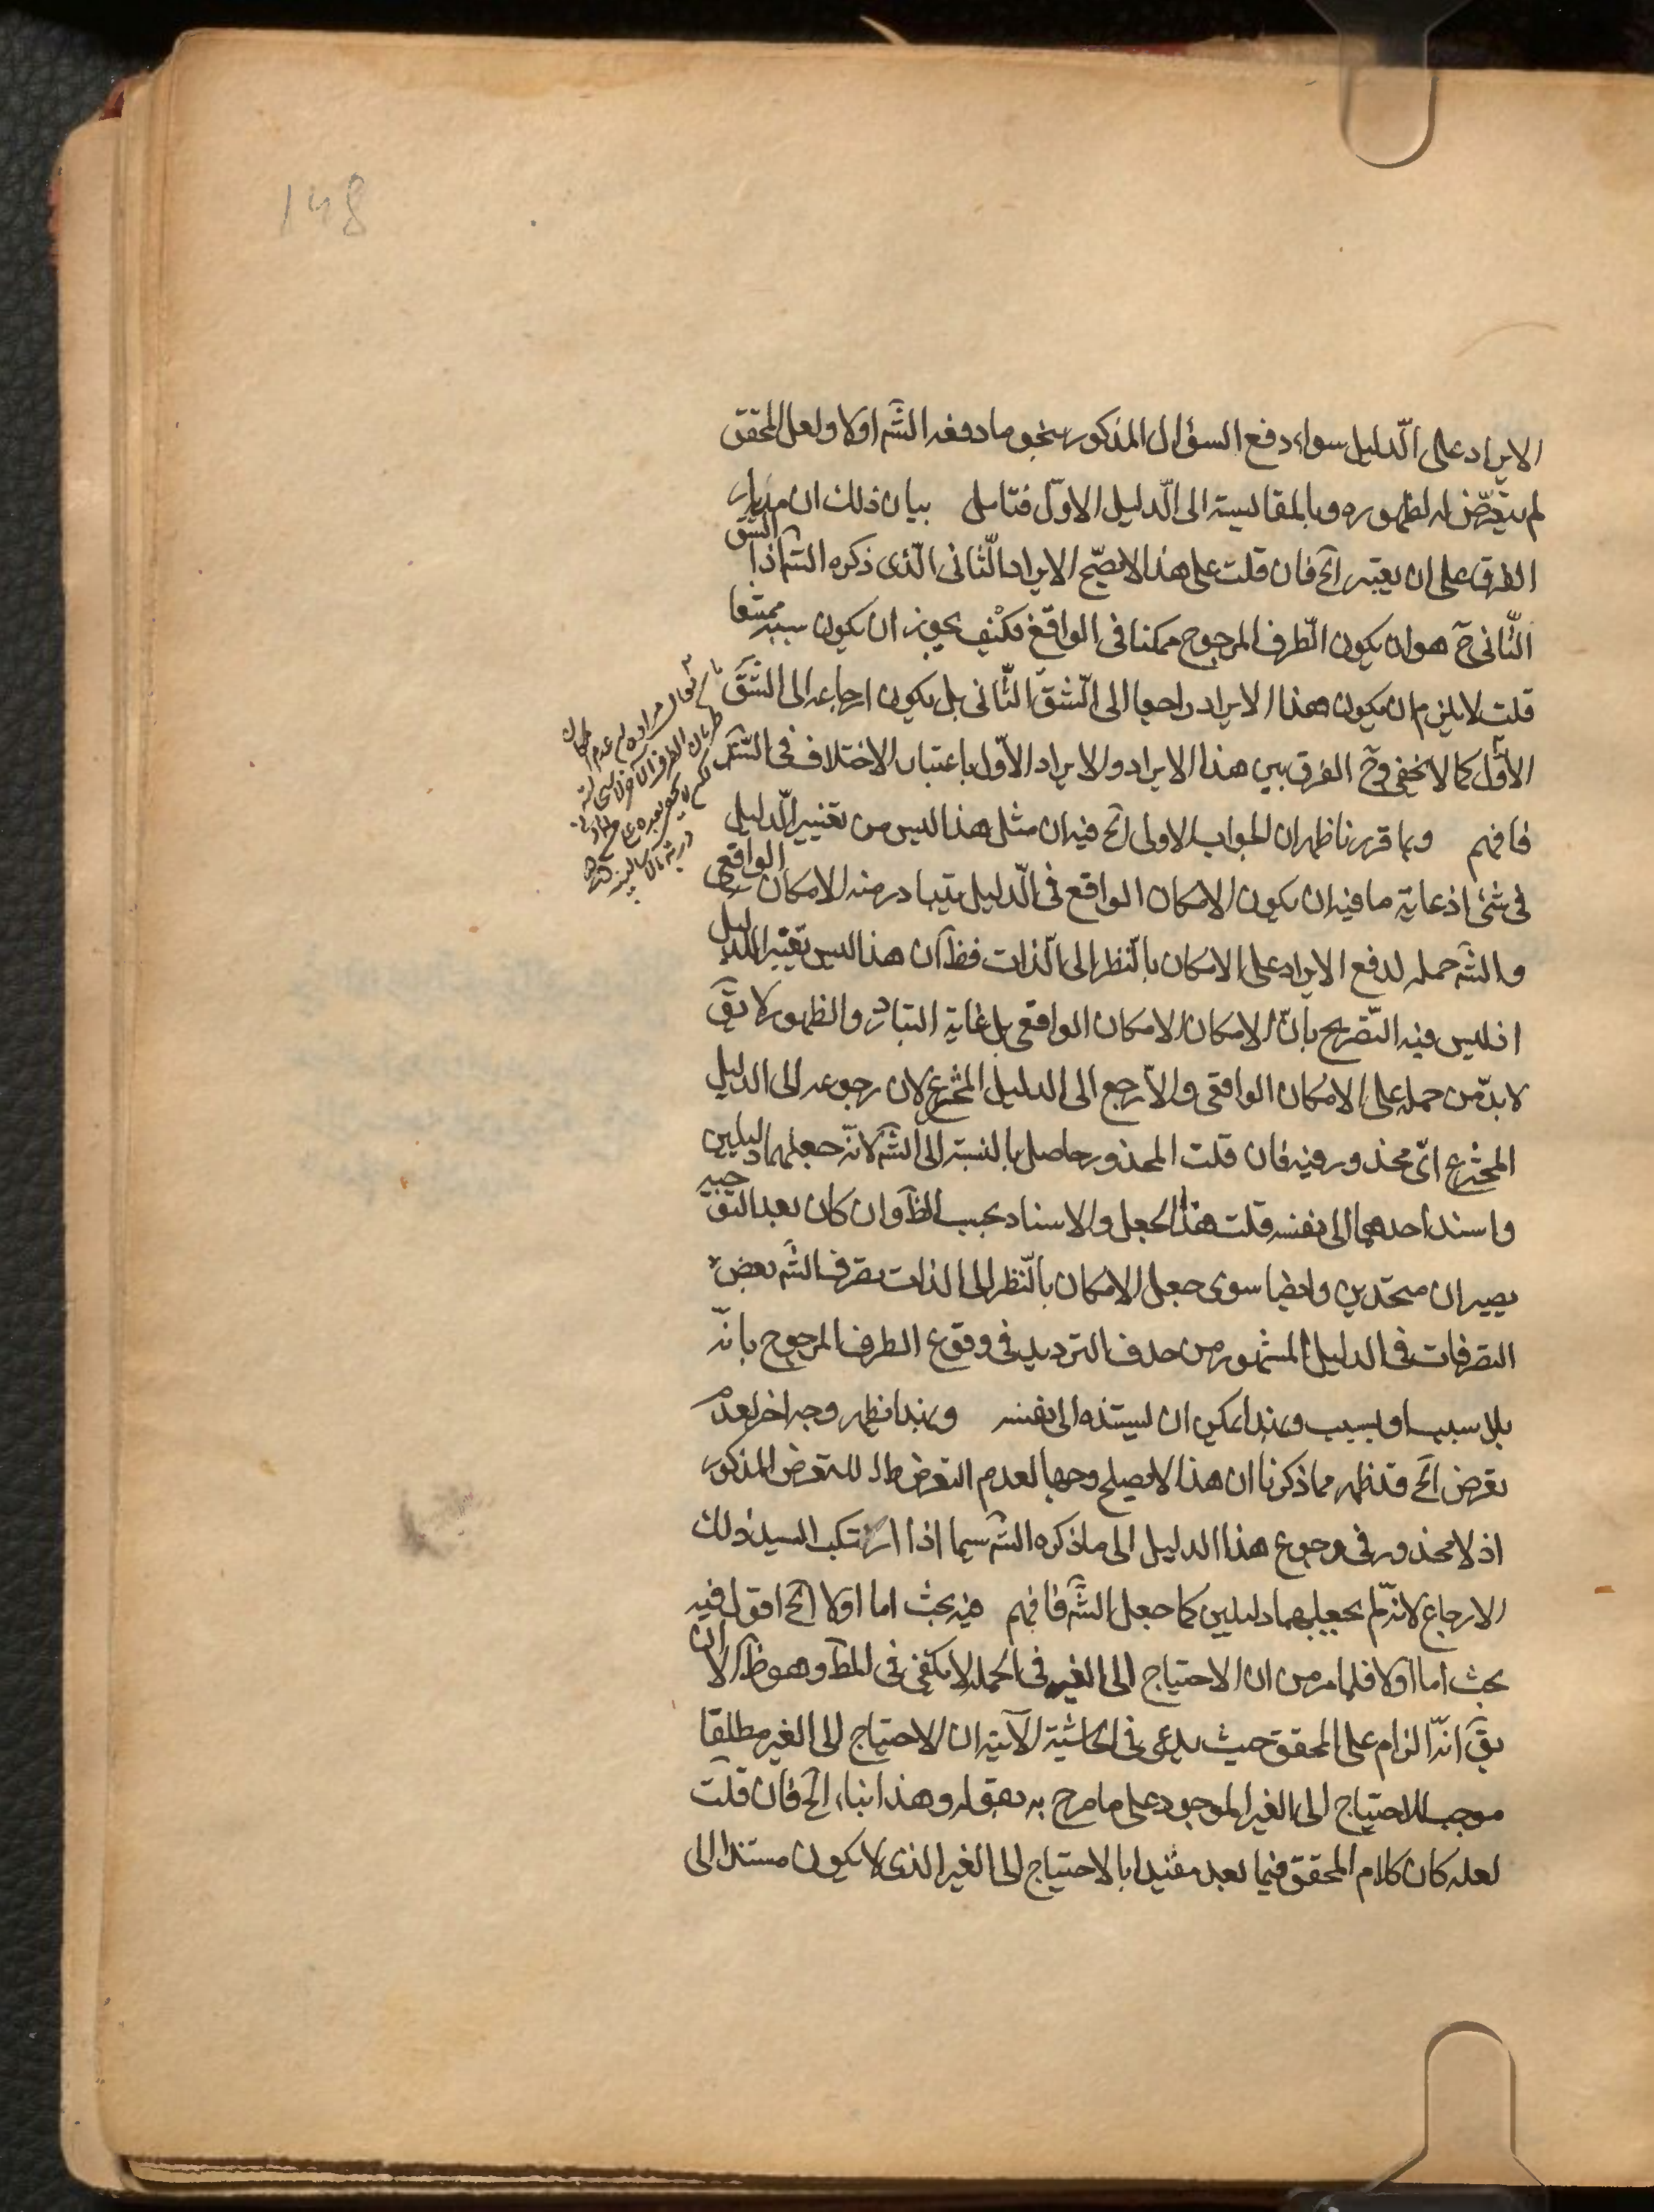 148
الايراد على الدّليل سواء دفع السؤال المذكور بنحو ما دفعه الشّٓه اولا ولعل المحقق
لم يتعرّض له لظهوره وبالمقايسة الى الدّليل الاوّل فتامل بيان ذلك ان مدار
الفرق على ان يعتبر آلخ فان قلت على هذا لا يصحّ الايراد الثّانى الّذى ذكره الشٓه اذ الشق
الثّانى حٓ هو ان يكون الطّرف المرجوح ممكنا فى الواقع فكيف يجوز ان يكون سببه ممتنعا
قلت لا يلزم ان يكون هذا الايراد راجعا الى الشّقّ الثّانى بل يكون ارجاعه الى الشّقّ
الاوّل كما لا يخفى وحٓ الفرق بين هذا الايراد والايراد الاوّل باعتبار الاختلاف فى السّند
فافهم وبما قررنا ظهر ان الجواب الاولى آلخ فيه ان مثل هذا ليس من تغيير الدّليل
فى شئ اذ غاية ما فيه ان يكون الامكان الواقع فى الدّليل يتبادر منه الامكان الواقعى
والشٓه حمله لدفع الايراد على الامكان بالنّظر الى الذات فظٓ ان هذا ليس تغيير الدليل
اذ ليس فيه التّصريح بانّ الامكان الامكان الواقعى بل غاية التبادر والظهور لا يقٓ
لا بدّ من حمله على الامكان الواقعى والا رجع الى الدليل المخترع لان رجوعه الى الدليل
المخترع اىّ محذور فيه فان قلت المحذور حاصل بالنسبة الى الشٓه لانّه جعلهما دليلين
واسند احدهما الى نفسه قلت هذا الجعل والاسناد بحسب الظٓ وان كان بعد التوجيه
يصيران متحدين وايضا سوى جعل الامكان بالنّظر الى الذات تصرف الشٓه بعض
التصرفات فى الدليل المشهور من حذف الترديد فى وقوع الطرف المرجوح بانّه
بلا سبب او بسبب وبهذا يمكن ان يسنده الى نفسه وبهذا يظهر وجه اخر لعدم
تعرض آلخ قد ظهر مما ذكرنا ان هذا لا يصلح وجها لعدم التعرض للتعرض المذكور
اذ لا محذور فى رجوع هذا الدليل الى ما ذكره الشٓه سيما اذا ارتكب السيد ذلك
الارجاع لانّه لم يجعلهما دليلين كما جعل الشٓه فافهم فيه بحث اما اولا آلخ اقول فيه
بحث اما اولا فلما مر من ان الاحتياج الى الغير فى الجملة لا يكفى فى المطٓ وهو ظٓ الا ان
يقٓ انّه الزام على المحقق حيث يدعى فى الحاشية الآتية ان الاحتياج الى الغير مطلقا
موجب للاحتياج الى الغير الموجود على ما صرح به بقوله وهذا بناء آلخ فان قلت
لعله كان كلام المحقق فيما بعد مقيدا بالاحتياج الى الغير الذى لا يكون مستندا الى